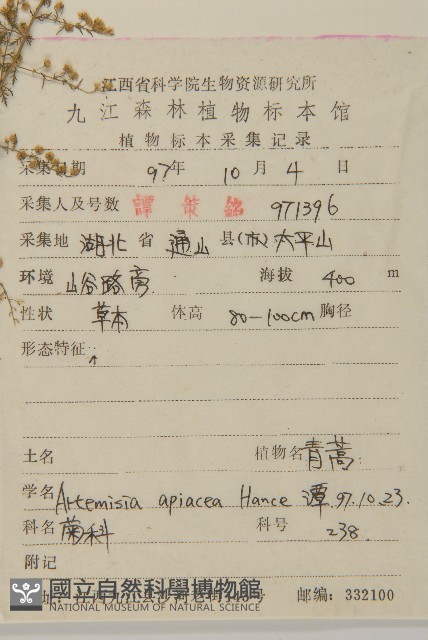 江西省科学院生物资源研究所
九江森林植物标本馆
植物标本采集记录
采集日期 97年 10月 4日
采集人及号数 譚策銘 971396
采集地 湖北省 通山县(市) 太平山
环境 山谷路旁 海拔 400 m
性状 草本 体高 80-100cm 胸径
形态特征
土名 植物名 青蒿
学名 Artemisia apiacea Hance 谭.97.10.23.
科名 菊科 科号 238.
附记
址:江西九江县沙河老街 号 邮编:332100
國立自然科學博物館
NATIONAL MUSEUM OF NATURAL SCIENCE